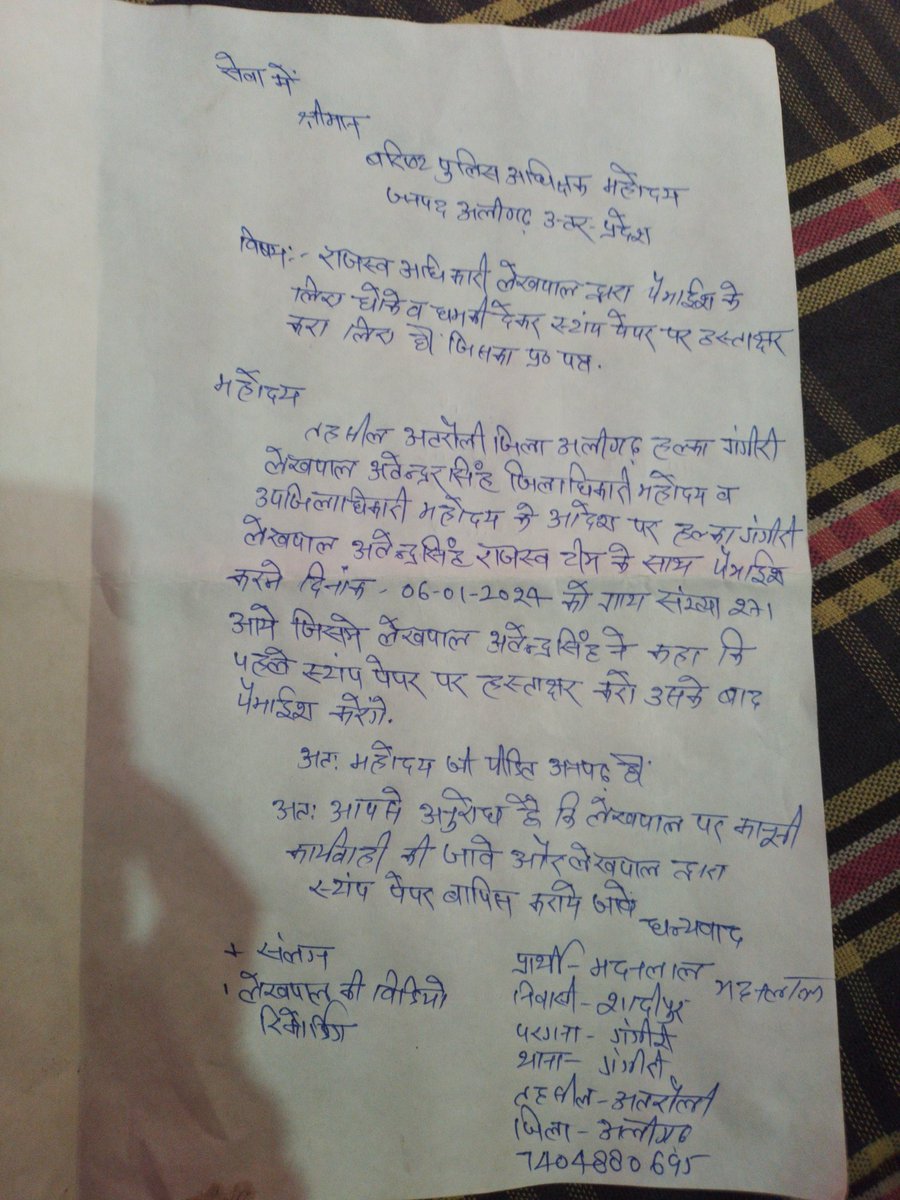 सेवा में
श्रीमान
वरिष्ठ पुलिस अधिक्षक महोदय
जनपद अलीगढ़ उत्तर-प्रदेश
विषय:- राजस्व अधिकारी लेखपाल द्वारा पैमाईश के
लिए धोके व धमकी देकर स्टांप पेपर पर हस्ताक्षर
करा लिए है। जिसका
महोदय
तहसील अतरौली जिला अलीगढ़ हल्का गंगीरी
लेखपाल अवेन्द्र सिंह जिलाधिकारी महोदय व
उपजिलाधिकारी महोदय के आदेश पर हल्का गंगीरी
लेखपाल अवेन्द्र सिंह राजस्व टीम के साथ पैमाईश
करने दिनांक - 06-01-2024 को संख्या 271
आये जिसमे लेखपाल अवेन्द्र सिंह ने कहा कि
पहले स्टांप पेपर पर हस्ताक्षर करो उसके बाद
पैमाईश करेंगे.
अतः महोदय जी पीडित अनपढ़ है।
अतः आपसे अनुरोध है कि लेखपाल पर कानूनी
कार्यवाही की जावे और लेखपाल द्वारा
स्टांप पेपर वापिस कराये जावे
धन्यवाद
+ संलग्न
लेखपाल की विडियो
रिकोर्डिंग
प्रार्थी - मदनलाल
मदनलाल
निवासी - शादीपुर
परगना - गंगीरी
थाना - गंगीरी
तहसील - अतरौली
जिला - अलीगढ़
7404880695